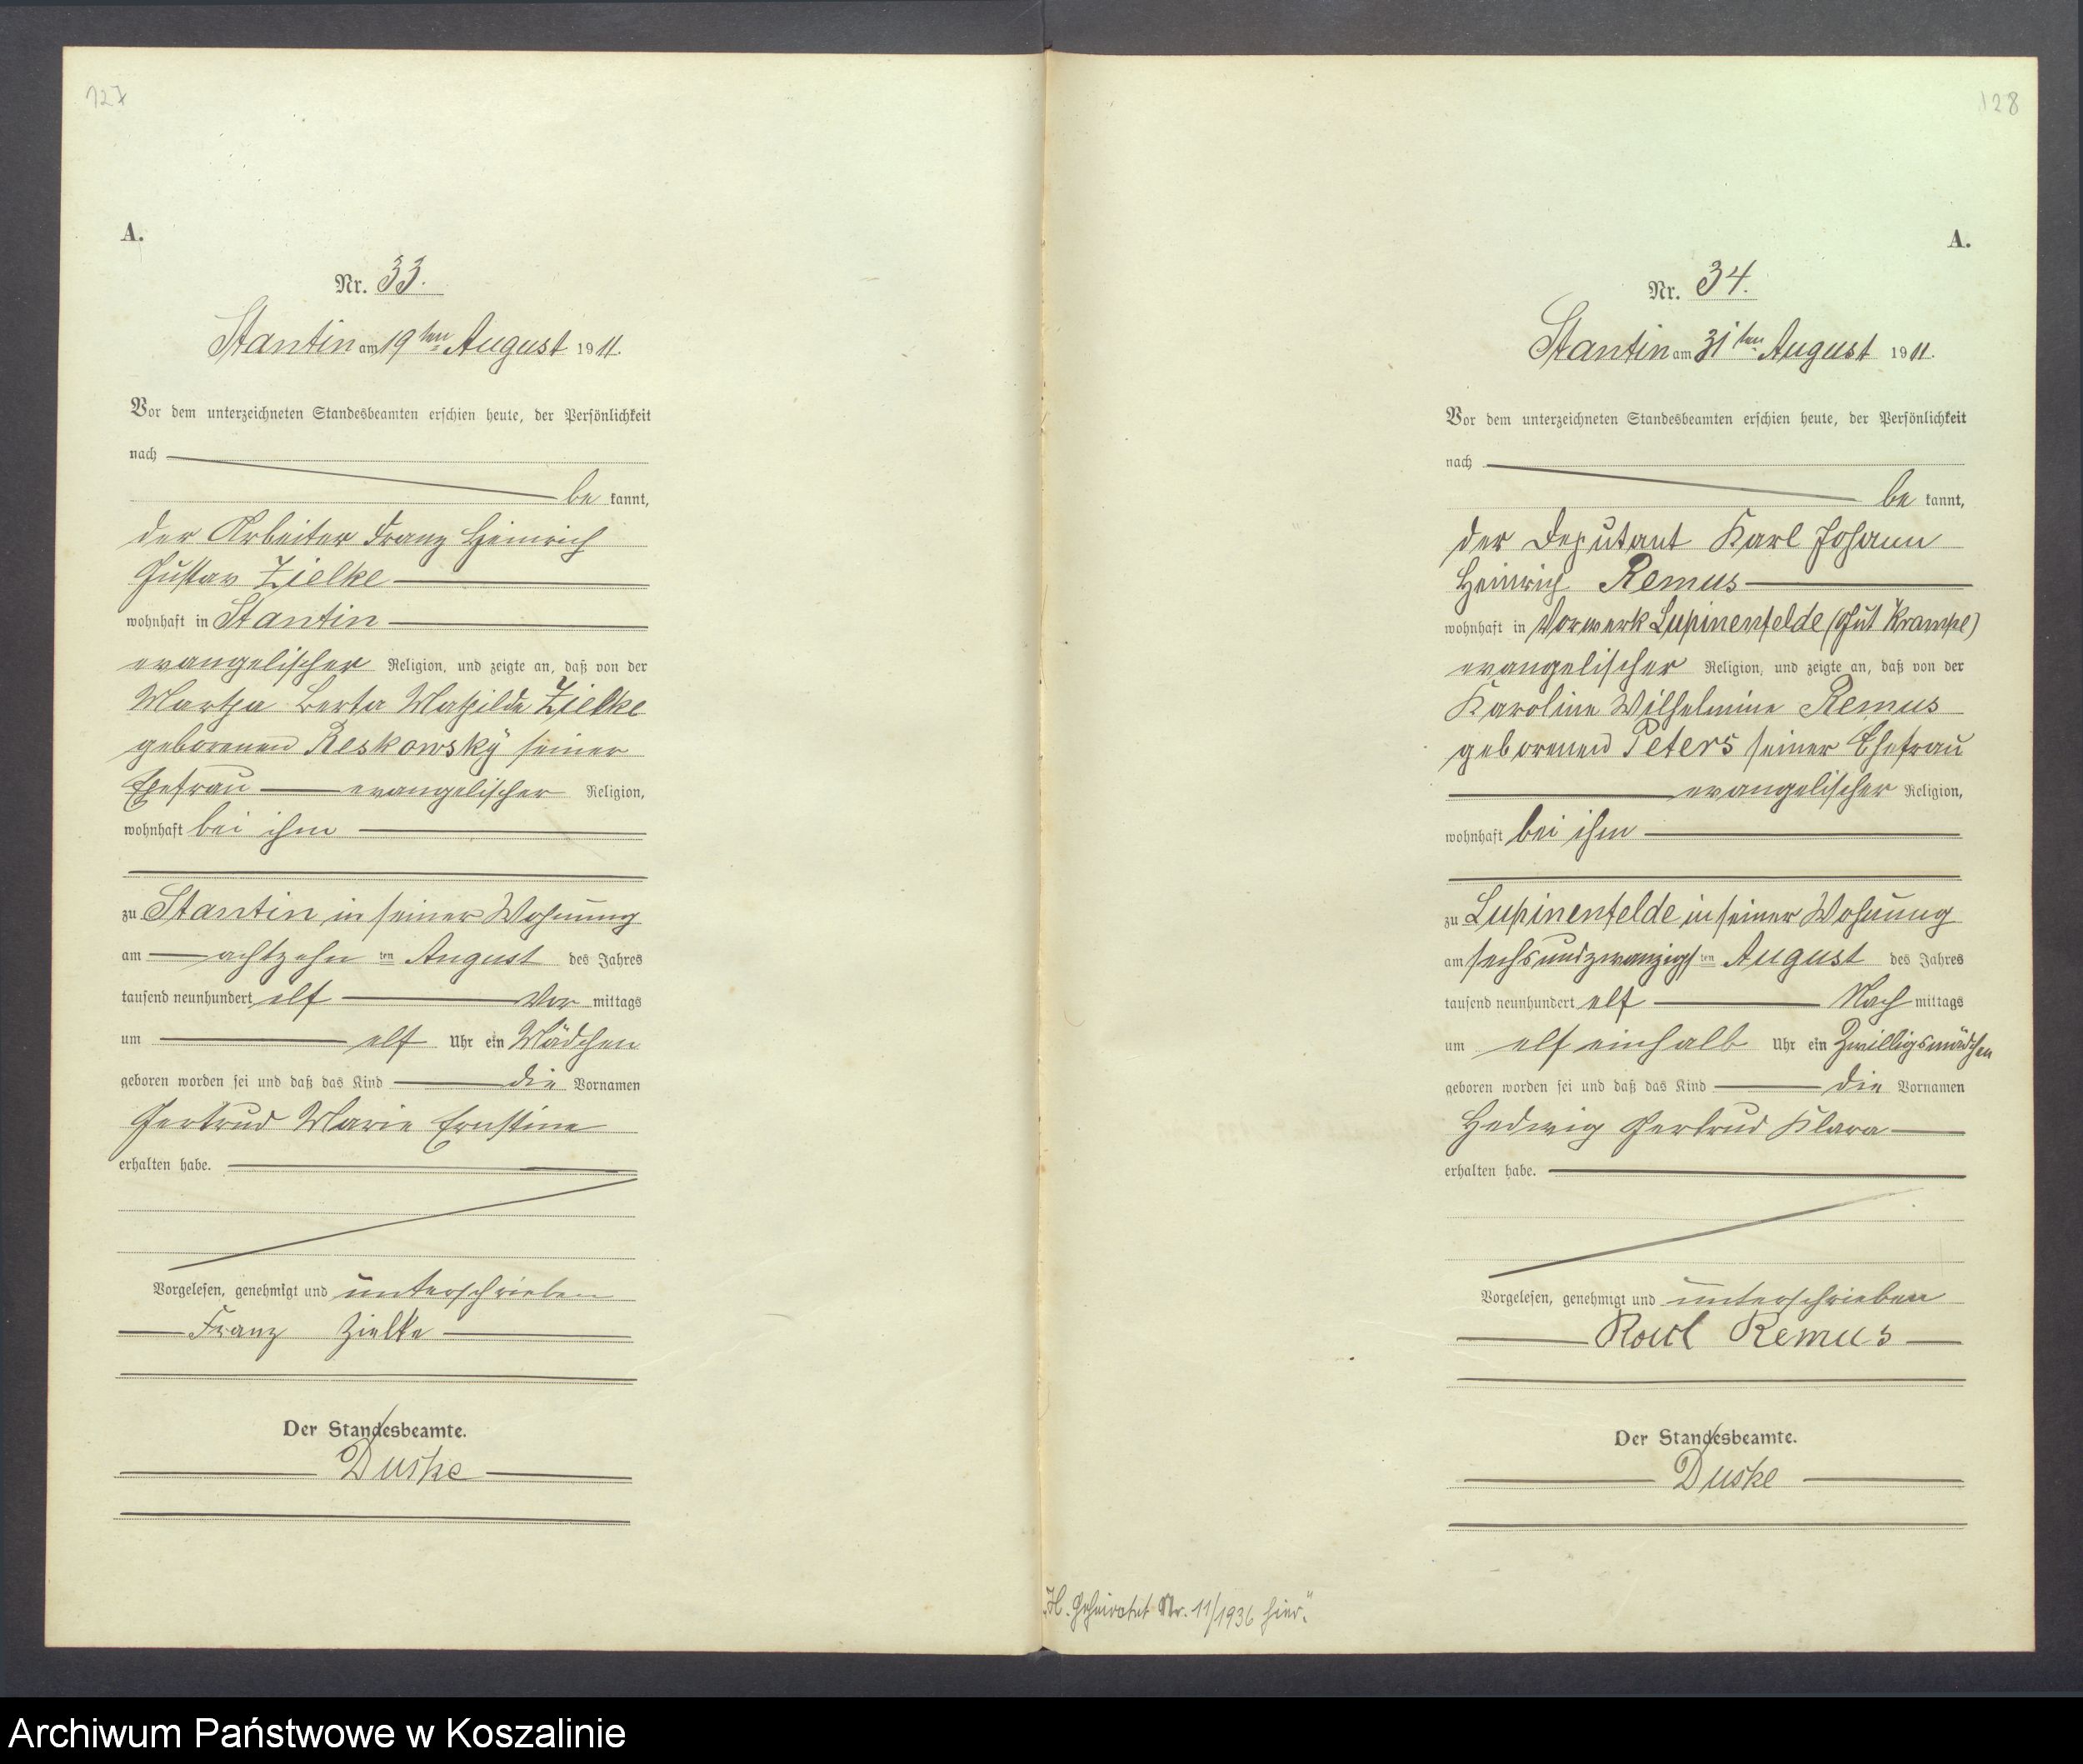 127
A.
Nr. 33.
Stantin am 19ten August 1911.
Vor dem unterzeichneten Standesbeamten erschien heute, der Persönlichkeit
nach
be kannt,
der Arbeiter Franz Heinrich
Gustav Zielke
wohnhaft in Stantin
evangelischer Religion, und zeigte an, daß von der
Martha Berta Mathilde Zielke
geborenen Reskowsky seiner
Ehefrau evangelischer Religion,
wohnhaft bei ihm
zu Stantin in seiner Wohnung
am achtzehn ten August des Jahres
tausend neunhundert elf Vor mittags
um elf Uhr ein Mädchen
geboren worden sei und daß das Kind die Vornamen
Gertrud Marie Ernstine
erhalten habe.
Vorgelesen, genehmigt und unterschrieben
Franz Zielke
Der Standesbeamte.
Duske
128
A.
Nr. 34.
Stantin am 31ten August 1911.
Vor dem unterzeichneten Standesbeamten erschien heute, der Persönlichkeit
nach
be kannt,
der Deputant Karl Johann
Heinrich Remus
wohnhaft in Vorwerk Lupinenfelde (Gut Krampe)
evangelischer Religion, und zeigte an, daß von der
Karoline Wilhelmine Remus
geborenen Peters seiner Ehefrau
evangelischer Religion,
wohnhaft bei ihm
zu Lupinenfelde in seiner Wohnung
am sechsundzwanzigs ten August des Jahres
tausend neunhundert elf Nach mittags
um elf einhalb Uhr ein Zwilligsmädchen
geboren worden sei und daß das Kind die Vornamen
Hedwig Gertrud Klara
erhalten habe.
Vorgelesen, genehmigt und unterschrieben
Karl Remus
Der Standesbeamte.
Duske
„H. Geheiratet Nr. 11/1936 hier."
Archiwum Państwowe w Koszalinie